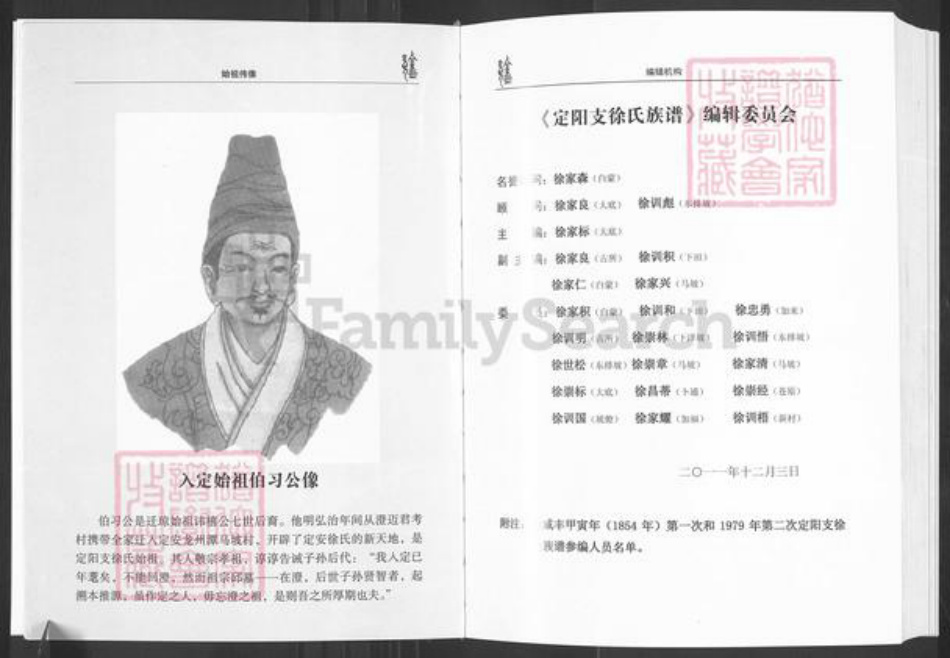 始祖传像
入定始祖伯习公像
伯习公是迁琼始祖讳橞公七世后裔。他明弘治年间从澄迈君考
村携带全家迁入定安龙州潭马坡村，开辟了定安徐氏的新天地，是
定阳支徐氏始祖。其人敬宗孝祖，谆谆告诫子孙后代：“我人定已
年耄矣，不能回澄，然而祖宗邱墓一一在澄，后世子孙贤智者，起
溯本推源，虽作定之人，毋忘澄之祖，是则吾之所厚期也夫。”
编辑机构
《定阳支徐氏族谱》编辑委员会
名誉 问：徐家森（白蒙）
顾 问：徐家良（大底） 徐训彪（东排坡）
主 编：徐家标（大底）
副主 编：徐家良（古所） 徐训积（下田）
徐家仁（白蒙） 徐家兴（马坡）
委 员：徐家积（白蒙） 徐训和 徐忠勇（加来）
徐训明（古所） 徐崇林（下洋坡） 徐训悟（东排坡）
徐世松（东排坡） 徐崇章（马坡） 徐家清（马坡）
徐崇标（大底） 徐昌蒂（卜通） 徐崇经
徐训国 徐家耀（加福） 徐训梧（新村）
二〇一一年十二月三日
附注： 咸丰甲寅年（1854 年）第一次和 1979 年第二次定阳支徐
族谱参编人员名单。
FamilySearch